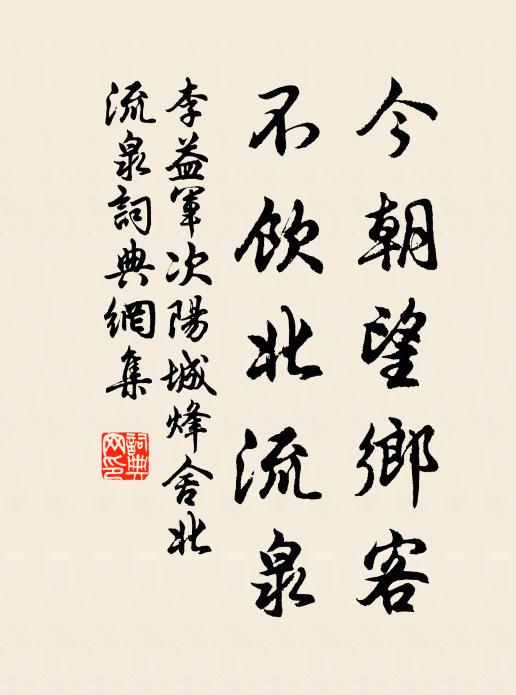 今朝望鄉客
不飲北流泉
李益軍次陽城烽舍北
流泉詞典網集
詞典網印